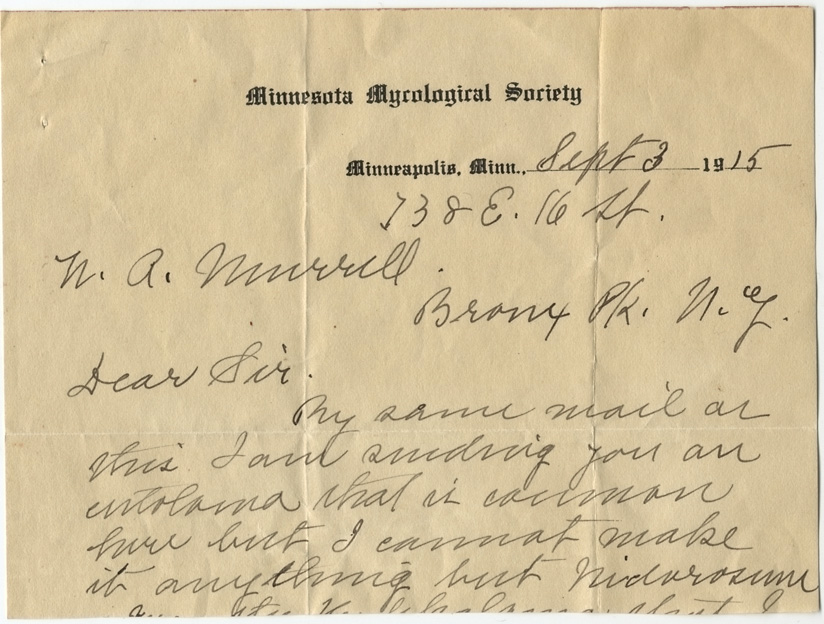 Minnesota Mycological Society
Minneapolis, Minn., Sept 3 1915
738 E. 16 St.
W. A. Murrill.
Bronx Pk. N.Y.
Dear Sir.
By same mail as
this I am sending you an
entoloma that is common
here but I cannot make
it anything but Nidorosum